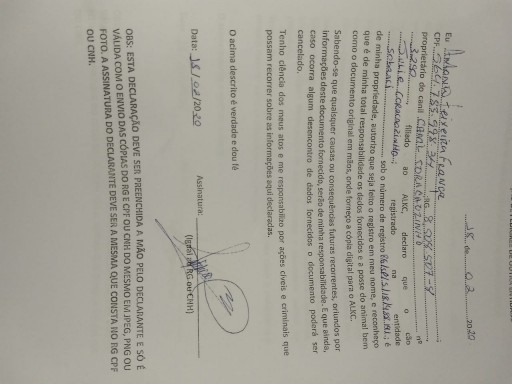 Eu Amanda Ferreira França
CPF
proprietário do canil CANIL CORAÇÃOZINHO nº
3290, filiado ao AUKC, declaro que o cão
registrado na entidade
sob o número de registro ; é
de minha propriedade, autorizo que seja feito o registro em meu nome, e reconheço
que é de minha total responsabilidade os dados fornecidos e a posse do animal bem
como o documento original em mãos, onde forneço a cópia digital para o AUKC.
Sabendo-se que quaisquer causas ou consequências futuras recorrentes, oriundos por
informações deste documento fornecido, serão de minha responsabilidade. E que ainda,
caso ocorra algum desencontro de dados fornecidos o documento poderá ser
cancelado.
Tenho ciência dos meus atos e me responsabilizo por ações cíveis e criminais que
possam recorrer sobre as informações aqui declaradas.
O acima descrito é verdade e dou fé
Data: 18/02/2020 Assinatura:
(Igual ao RG ou CNH)
OBS: ESTA DECLARAÇÃO DEVE SER PREENCHIDA A MÃO PELO DECLARANTE E SÓ É
VÁLIDA COM O ENVIO DAS CÓPIAS DO RG E CPF OU CNH DO MESMO EM JPEG, PNG OU
FOTO. A ASSINATURA DO DECLARANTE DEVE SER A MESMA QUE CONSTA NO RG CPF
OU CNH.